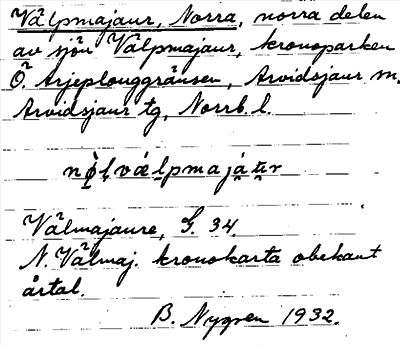 Välpmajaur, Norra, norra delen
av sjön Välpmajaur, kronoparken
Ö. Arjeplouggränsen, Arvidsjaur sn.
Arvidsjaur tg, Norrb. l.
Välmajaure, G. 34.
N. Välmaj. kronokarta obekant
årtal.
B. Nygren 1932.